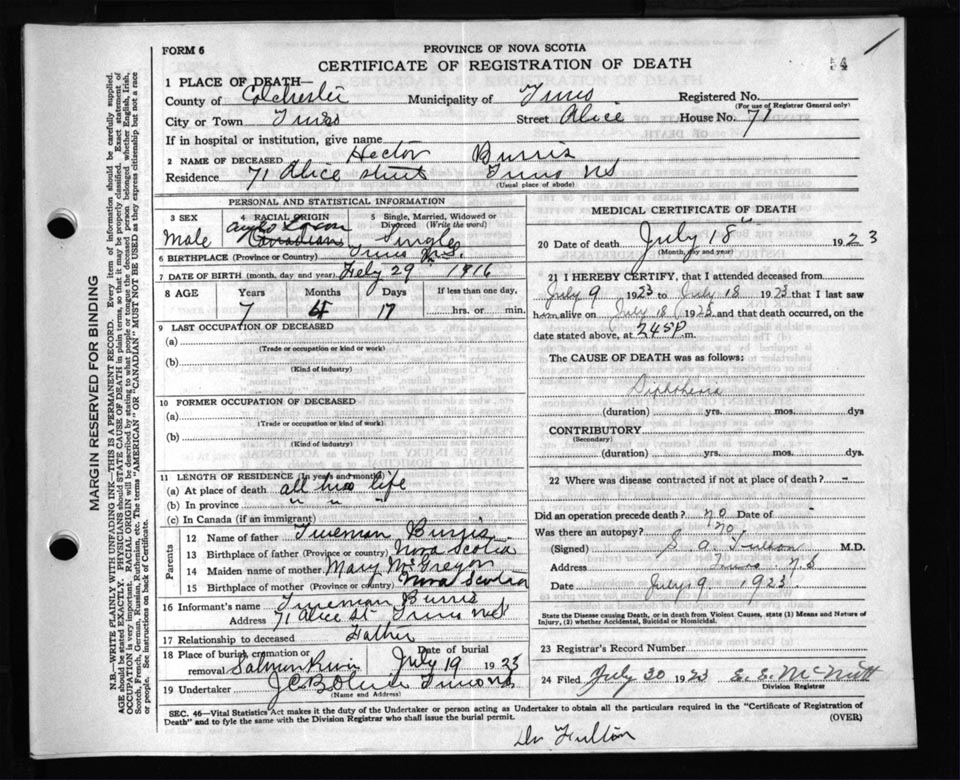 FORM 6
PROVINCE OF NOVA SCOTIA
CERTIFICATE OF REGISTRATION OF DEATH
54
1 PLACE OF DEATH—
County of Colchester Municipality of Truro Registered No.
(For use of Registrar General only)
City or Town Truro Street Alice House No. 71
If in hospital or institution, give name
2 NAME OF DECEASED Hector Burris
Residence 71 Alice street Truro NS
(Usual place of abode)
PERSONAL AND STATISTICAL INFORMATION
3 SEX 4 RACIAL ORIGIN 5 Single, Married, Widowed or Divorced (Write the word)
Male Anglo Saxon Canadian Single
6 BIRTHPLACE (Province or Country) Truro N.S.
7 DATE OF BIRTH (month, day and year) Feby 29" 1916
8 AGE Years Months Days If less than one day,
7 4 17 hrs. or min.
9 LAST OCCUPATION OF DECEASED
(a)
(Trade or occupation or kind or work)
(b)
(Kind of industry)
10 FORMER OCCUPATION OF DECEASED
(a)
(Trade or occupation or kind of work)
(b)
(Kind of industry)
11 LENGTH OF RESIDENCE (In years and months)
(a) At place of death all his life
(b) In province " " "
(c) In Canada (if an immigrant)
Parents
12 Name of father Trueman Burris
13 Birthplace of father (Province or country) Nova Scotia
14 Maiden name of mother Mary McGregor
15 Birthplace of mother (Province or country) Nova Scotia
16 Informant's name Trueman Burris
Address 71 Alice St Truro NS
17 Relationship to deceased Father
18 Place of burial, cremation or removal Salmon River Date of burial July 19 1923
19 Undertaker Truro NS
(Name and Address)
MEDICAL CERTIFICATE OF DEATH
20 Date of death July 18" 1923
(Month, day and year)
21 I HEREBY CERTIFY, that I attended deceased from
July 9 1923 to July 18 1923 that I last saw
him alive on July 18 1923 and that death occurred, on the
date stated above, at 245P m.
The CAUSE OF DEATH was as follows:
Diphtheria
(duration) yrs. mos. dys
CONTRIBUTORY
(Secondary)
(duration) yrs. mos. dys.
22 Where was disease contracted if not at place of death? -
Did an operation precede death? no Date of -
Was there an autopsy? no
(Signed) S. A. Fulton M.D.
Address Truro N.S
Date July 9. 1923
State the Disease causing Death, or in death from Violent Causes, state (1) Means and Nature of
Injury, (2) whether Accidental, Suicidal or Homicidal.
23 Registrar's Record Number
24 Filed July 20 1923 E. E. McNutt
Division Registrar
SEC. 46—Vital Statistics Act makes it the duty of the Undertaker or person acting as Undertaker to obtain all the particulars required in the "Certificate of Registration of
Death" and to fyle the same with the Division Registrar who shall issue the burial permit.
(OVER)
Dr Fulton
MARGIN RESERVED FOR BINDING
N.B.—WRITE PLAINLY WITH UNFADING INK—THIS IS A PERMANENT RECORD. Every item of information should be carefully supplied.
AGE should be stated EXACTLY. PHYSICIANS should STATE CAUSE OF DEATH in plain terms, so that it may be properly classified. Exact statement of
OCCUPATION is very important. RACIAL ORIGIN will be described by stating to what people or tongue the deceased person belonged whether English, Irish,
Scotch, French, German, Russian, Ruthenian, etc. The terms "AMERICAN" or "CANADIAN" MUST NOT BE USED as they express citizenship but not a race
or people. See instructions on back of Certificate.